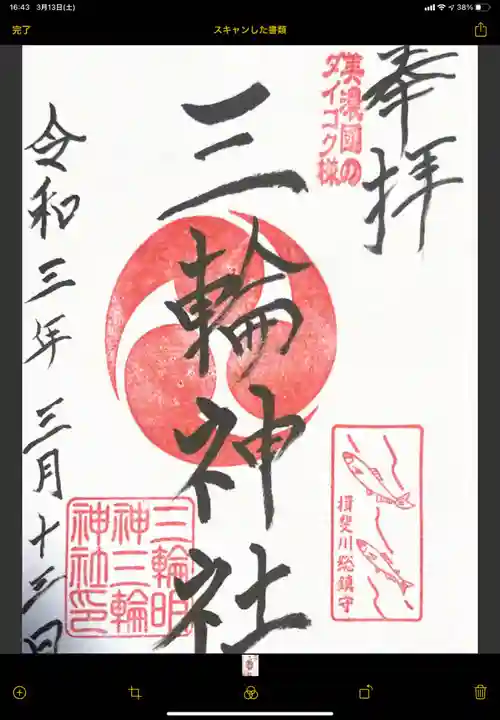 16:43 3月13日(土)
38%
完了
スキャンした書類
奉拝
美濃國の
ダイコク様
三輪神社
令和三年 三月十三日
揖斐川総鎮守
三輪明
神三輪
神社印